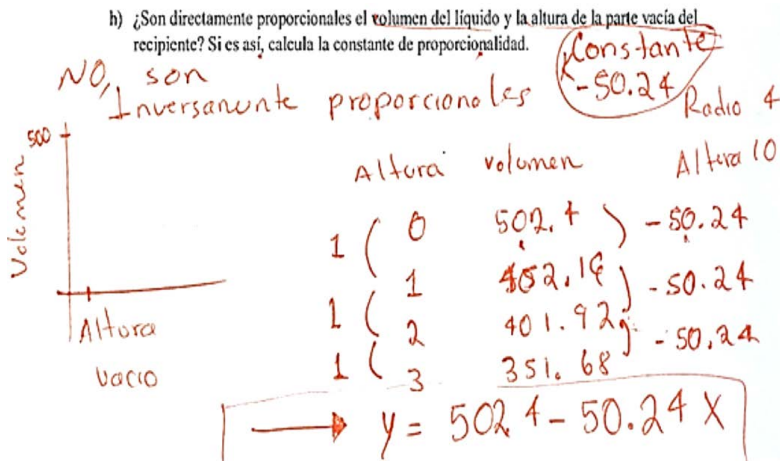 h) ¿Son directamente proporcionales el volumen del líquido y la altura de la parte vacía del
recipiente? Si es así, calcula la constante de proporcionalidad.
Constante
-50.24
NO, son
Inversamente proporcionales
Radio 4
Altura 10
500
Volumen
Altura
Vacio
Altura volumen
1 ( 0 502.4 ) -50.24
1 ( 1 452.16 ) -50.24
1 ( 2 401.92 ) -50.24
3 351.68
y = 502.4 - 50.24 X